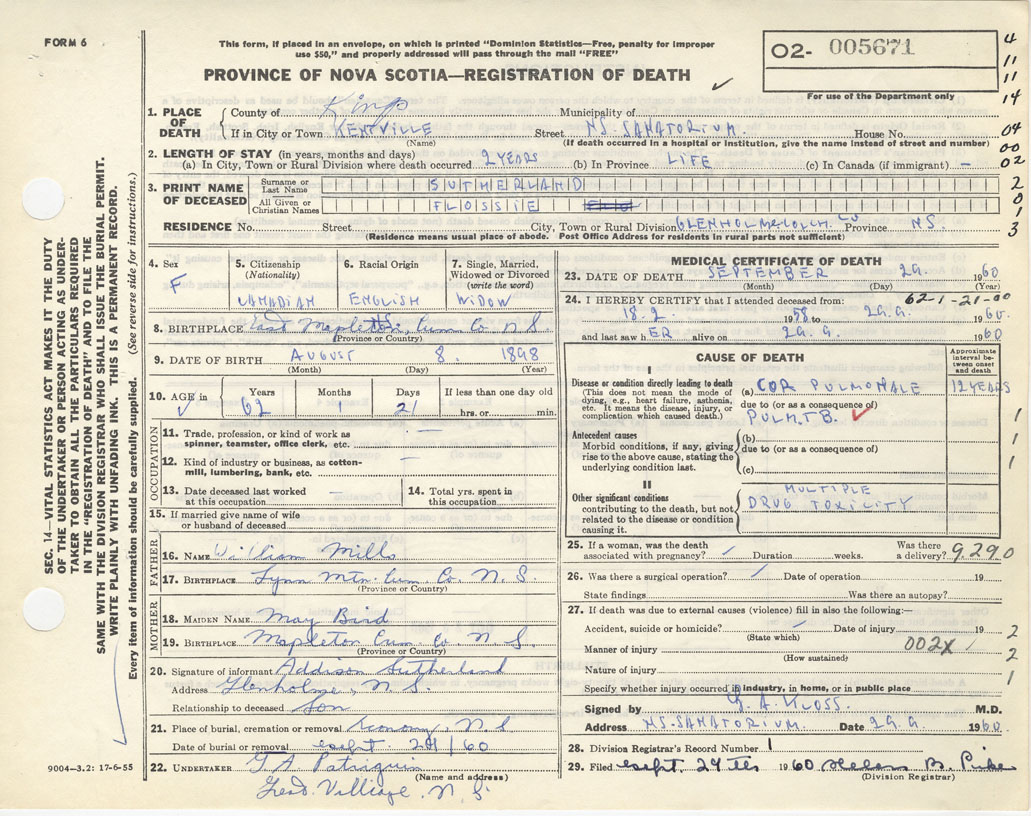 FORM 6
This form, if placed in an envelope, on which is printed "Dominion Statistics—Free, penalty for improper
use $50," and properly addressed will pass through the mail "FREE"
PROVINCE OF NOVA SCOTIA—REGISTRATION OF DEATH
02- 005671
For use of the Department only
4
11
11
14
04
00
02
2
0
1
3
1. PLACE OF DEATH
County of Kings Municipality of
If in City or Town KENTVILLE Street NS. SANATORIUM. House No.
(Name) (If death occurred in a hospital or institution, give the name instead of street and number)
2. LENGTH OF STAY (in years, months and days)
(a) In City, Town or Rural Division where death occurred 2 YEARS (b) In Province LIFE (c) In Canada (if immigrant) –
3. PRINT NAME OF DECEASED
Surname or Last Name SUTHERLAND
All Given or Christian Names FLOSSIE
RESIDENCE No. Street City, Town or Rural Division GLENHOLME, COLCH. Co Province NS.
(Residence means usual place of abode. Post Office Address for residents in rural parts not sufficient)
4. Sex F
5. Citizenship (Nationality) CANADIAN
6. Racial Origin ENGLISH
7. Single, Married, Widowed or Divorced (write the word) WIDOW
8. BIRTHPLACE East Mapleton, Cum Co N.S.
(Province or Country)
9. DATE OF BIRTH AUGUST 8. 1898
(Month) (Day) (Year)
10. AGE in Years 62 Months 1 Days 21 If less than one day old hrs. or min.
OCCUPATION
11. Trade, profession, or kind of work as spinner, teamster, office clerk, etc. —
12. Kind of industry or business, as cotton-mill, lumbering, bank, etc. —
13. Date deceased last worked at this occupation —
14. Total yrs. spent in this occupation
15. If married give name of wife or husband of deceased
FATHER
16. NAME William Mills
17. BIRTHPLACE Lynn Mtn. Cum. Co. N.S.
(Province or Country)
MOTHER
18. MAIDEN NAME May Bird
19. BIRTHPLACE Mapleton Cum. Co N.S.
(Province or Country)
20. Signature of informant Addison Sutherland
Address Glenholme, N.S.
Relationship to deceased Son
21. Place of burial, cremation or removal Economy, N.S
Date of burial or removal sept. /60
22. UNDERTAKER
(Name and address)
N.S.
MEDICAL CERTIFICATE OF DEATH
23. DATE OF DEATH SEPTEMBER 29. 1960
(Month) (Day) (Year)
24. I HEREBY CERTIFY that I attended deceased from: 62-1-21-00
18.2. 1958 to 29.9. 1960.
and last saw hER alive on 29.9. 1960
CAUSE OF DEATH
Approximate interval between onset and death
I
Disease or condition directly leading to death
(This does not mean the mode of dying, e.g., heart failure, asthenia, etc. It means the disease, injury, or complication which caused death.)
(a) COR PULMONALE 12 YEARS
due to (or as a consequence of)
PULM. TB.
Antecedent causes
Morbid conditions, if any, giving rise to the above cause, stating the underlying condition last.
(b)
due to (or as a consequence of)
(c)
1
1
1
II
Other significant conditions
contributing to the death, but not related to the disease or condition causing it.
MULTIPLE
DRUG TOXICITY
25. If a woman, was the death associated with pregnancy? Duration weeks. Was there a delivery? 9290
26. Was there a surgical operation? Date of operation 19
State findings Was there an autopsy?
27. If death was due to external causes (violence) fill in also the following:—
Accident, suicide or homicide? Date of injury 19 2
(State which)
Manner of injury 002X 2
(How sustained)
Nature of injury 1
Specify whether injury occurred in industry, in home, or in public place
Signed by KLOSS. M.D.
Address NS. SANATORIUM. Date 29.9. 1960.
28. Division Registrar's Record Number 1
29. Filed sept. 29 th 1960 Helen B.
(Division Registrar)
SEC. 14—VITAL STATISTICS ACT MAKES IT THE DUTY
OF THE UNDERTAKER OR PERSON ACTING AS UNDER-
TAKER TO OBTAIN ALL THE PARTICULARS REQUIRED
IN THE "REGISTRATION OF DEATH" AND TO FILE THE
SAME WITH THE DIVISION REGISTRAR WHO SHALL ISSUE THE BURIAL PERMIT.
WRITE PLAINLY WITH UNFADING INK. THIS IS A PERMANENT RECORD.
Every item of information should be carefully supplied. (See reverse side for instructions.)
9004—3.2: 17-6-55